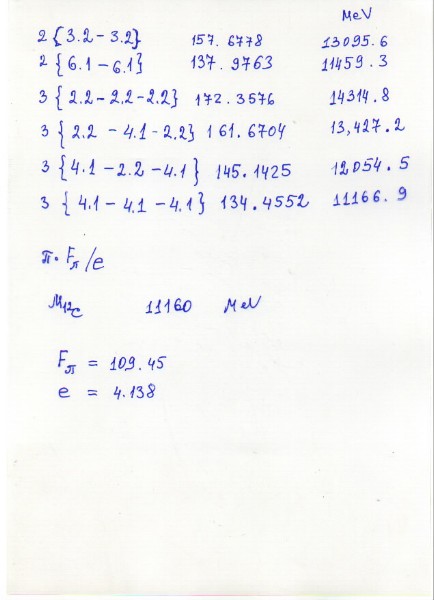 MeV
2 {3.2 - 3.2} 157.6778 13095.6
2 {6.1 - 6.1} 137.9763 11459.3
3 {2.2 - 2.2 - 2.2} 172.3576 14314.8
3 {2.2 - 4.1 - 2.2} 161.6704 13,427.2
3 {4.1 - 2.2 - 4.1} 145.1425 12054.5
3 {4.1 - 4.1 - 4.1} 134.4552 11166.9
π · Fπ /e
M12C 11160 MeV
Fπ = 109.45
e = 4.138